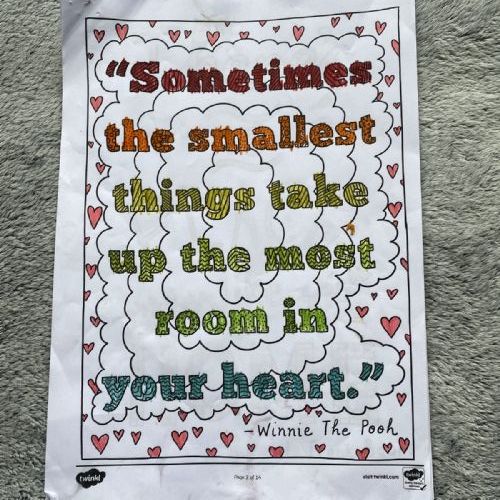 “Sometimes
the smallest
things take
up the most
room in
your heart.”
-Winnie The Pooh
twinkl
Page 2 of 14
visit twinkl.com